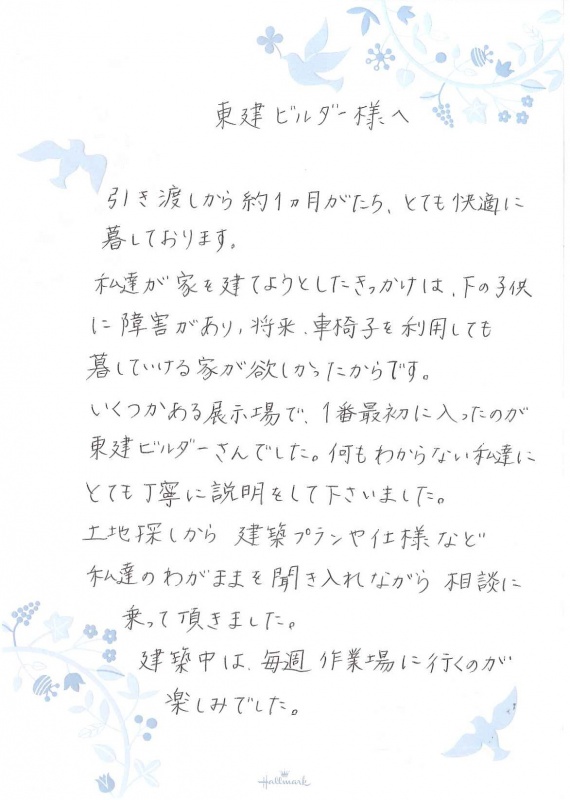 東建ビルダー様へ
引き渡しから約1ヵ月がたち、とても快適に
暮しております。
私達が家を建てようとしたきっかけは、下の子供
に障害があり、将来、車椅子を利用しても
暮していける家が欲しかったからです。
いくつかある展示場で、1番最初に入ったのが
東建ビルダーさんでした。何もわからない私達に
とても丁寧に説明をして下さいました。
土地探しから 建築プランや仕様など
私達のわがままを聞き入れながら 相談に
乗って頂きました。
建築中は、毎週 作業場に行くのが
楽しみでした。
Hallmark